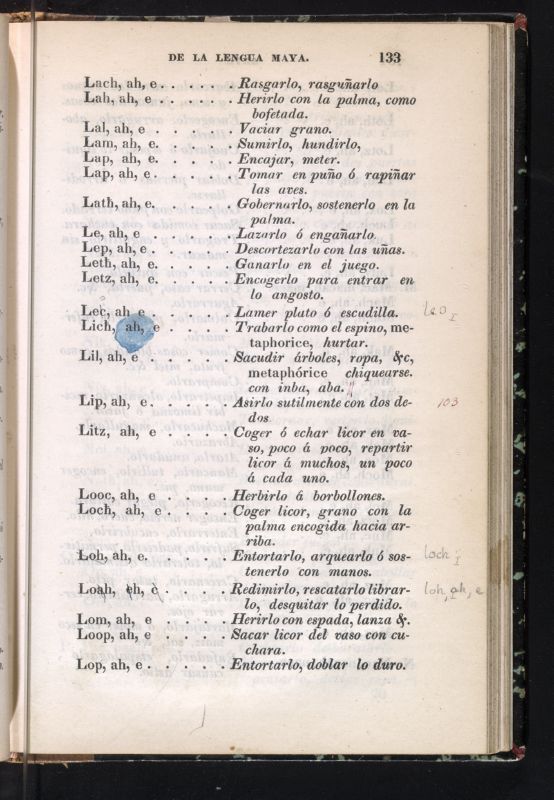 DE LA LENGUA MAYA. 133
Lach, ah, e . . . . . . . Rasgarlo, rasguñarlo
Lah, ah, e . . . . . Herirlo con la palma, como
bofetada.
Lal, ah, e . . . . . Vaciar grano.
Lam, ah, e. . . . . Sumirlo, hundirlo,
Lap, ah, e. . . . . Encajar, meter.
Lap, ah, e . . . . . Tomar en puño ó rapiñar
las aves.
Lath, ah, e. . . . . Gobernarlo, sostenerlo en la
palma.
Le, ah, e . . . . . Lazarlo ó engañarlo
Lep, ah, e . . . . . Descortezarlo con las uñas.
Leth, ah, e. . . . . Ganarlo en el juego.
Letz, ah, e. . . . . Encogerlo para entrar en
lo angosto.
Lec, ah e . . . . . Lamer pluto ó escudilla.
Lich, ah, e . . . . Trabarlo como el espino, me-
taphorice, hurtar.
Lil, ah, e . . . . . Sacudir árboles, ropa, &c,
metaphórice chiquearse.
con inba, aba.
Lip, ah, e . . . . . Asirlo sutilmente con dos de- 103
dos
Litz, ah, e . . . . Coger ó echar licor en va-
so, poco á poco, repartir
licor á muchos, un poco
á cada uno.
Looc, ah, e . . . . Herbirlo á borbollones.
Loch, ah, e . . . . Coger licor, grano con la
palma encogida hacia ar-
riba.
Loh, ah, e. . . . . Entortarlo, arquearlo ó sos- loch
tenerlo con manos.
Loah, eh, c . . . . Redimirlo, rescatarlo librar- loh, ah, e
lo, desquitar lo perdido.
Lom, ah, e . . . . Herirlo con espada, lanza &.
Loop, ah, e . . . . Sacar licor del vaso con cu-
chara.
Lop, ah, e . . . . . Entortarlo, doblar lo duro.